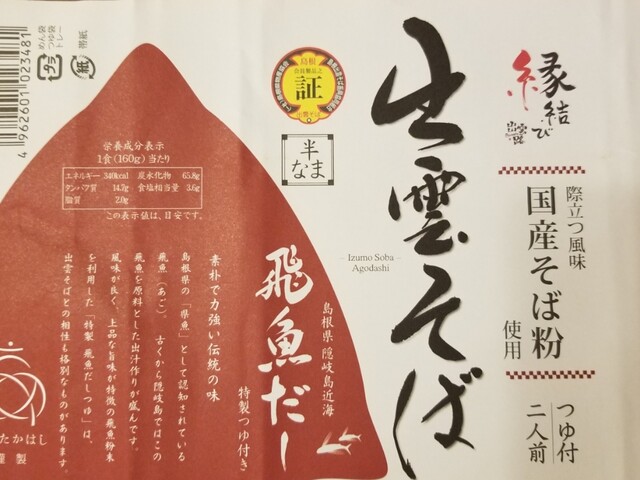 縁結び
際立つ風味
国産そば粉
使用
つゆ付
二人前
出雲そば
Izumo Soba
Agodashi
島根
証
半
なま
島根県 隠岐島近海
飛魚だし
特製つゆ付き
素朴で力強い伝統の味
島根県の「県魚」として認知されている
飛魚(あご)。 古くから隠岐島ではこの
飛魚を原料とした出汁作りが盛んです。
風味が良く、上品な旨味が特徴の飛魚粉末
を利用した「特製 飛魚だしつゆ」は、
出雲そばとの相性も格別なものがあります。
栄養成分表示
1食(160g)当たり
エネルギー 340kcal 炭水化物 65.8g
タンパク質 14.7g 食塩相当量 3.6g
脂質 2.0g
この表示値は、目安です。
めん袋
つゆ袋
トレー
プラ
帯紙
紙
4 962601 023481
たかはし
謹製